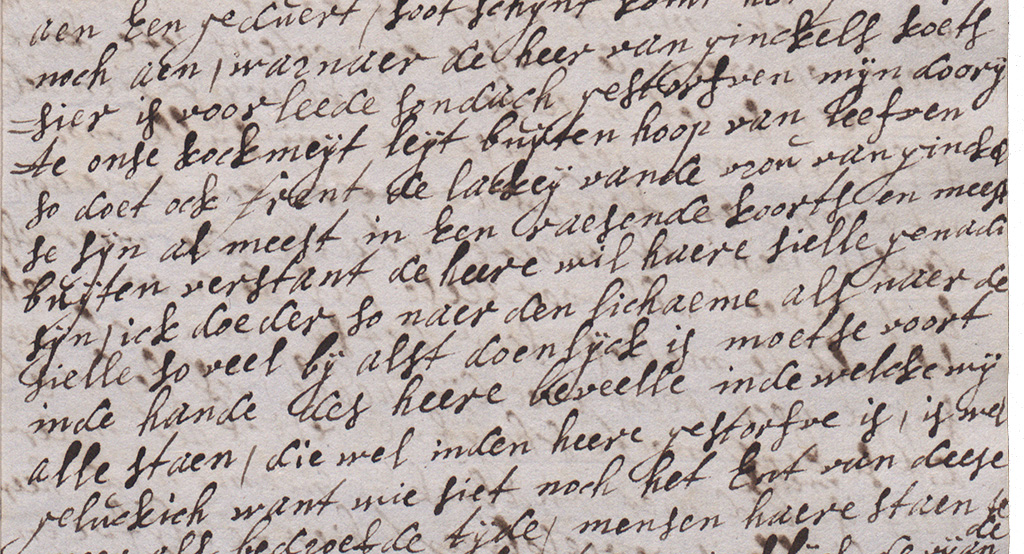 aen een geduert, soot schijnt komt
noch aen, warnaer de heer van ginckels koets
=sier is voorleede sondach gestorfven mijn doorij
=te onse kockmeijt leijt buijten hoop van leefven
so doet ock frent de lackeij vande vrou van ginckel
se sijn al meest in een raesende koorts en meest
buijten verstant de heere wil haere sielle genadi
sijn, ick doe der so naer den lichaeme als naer de
sielle so veel bij alst doenlijck is moetse voort
inde hande des heere beveelle inde welcke wij
alle staen, die wel inden heere gestorfve is, is wel
geluckich want wie siet noch het ent van deese
bedroefde tijde, mensen haere staen te
de